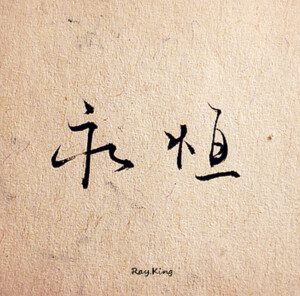 永恒
Ray.King